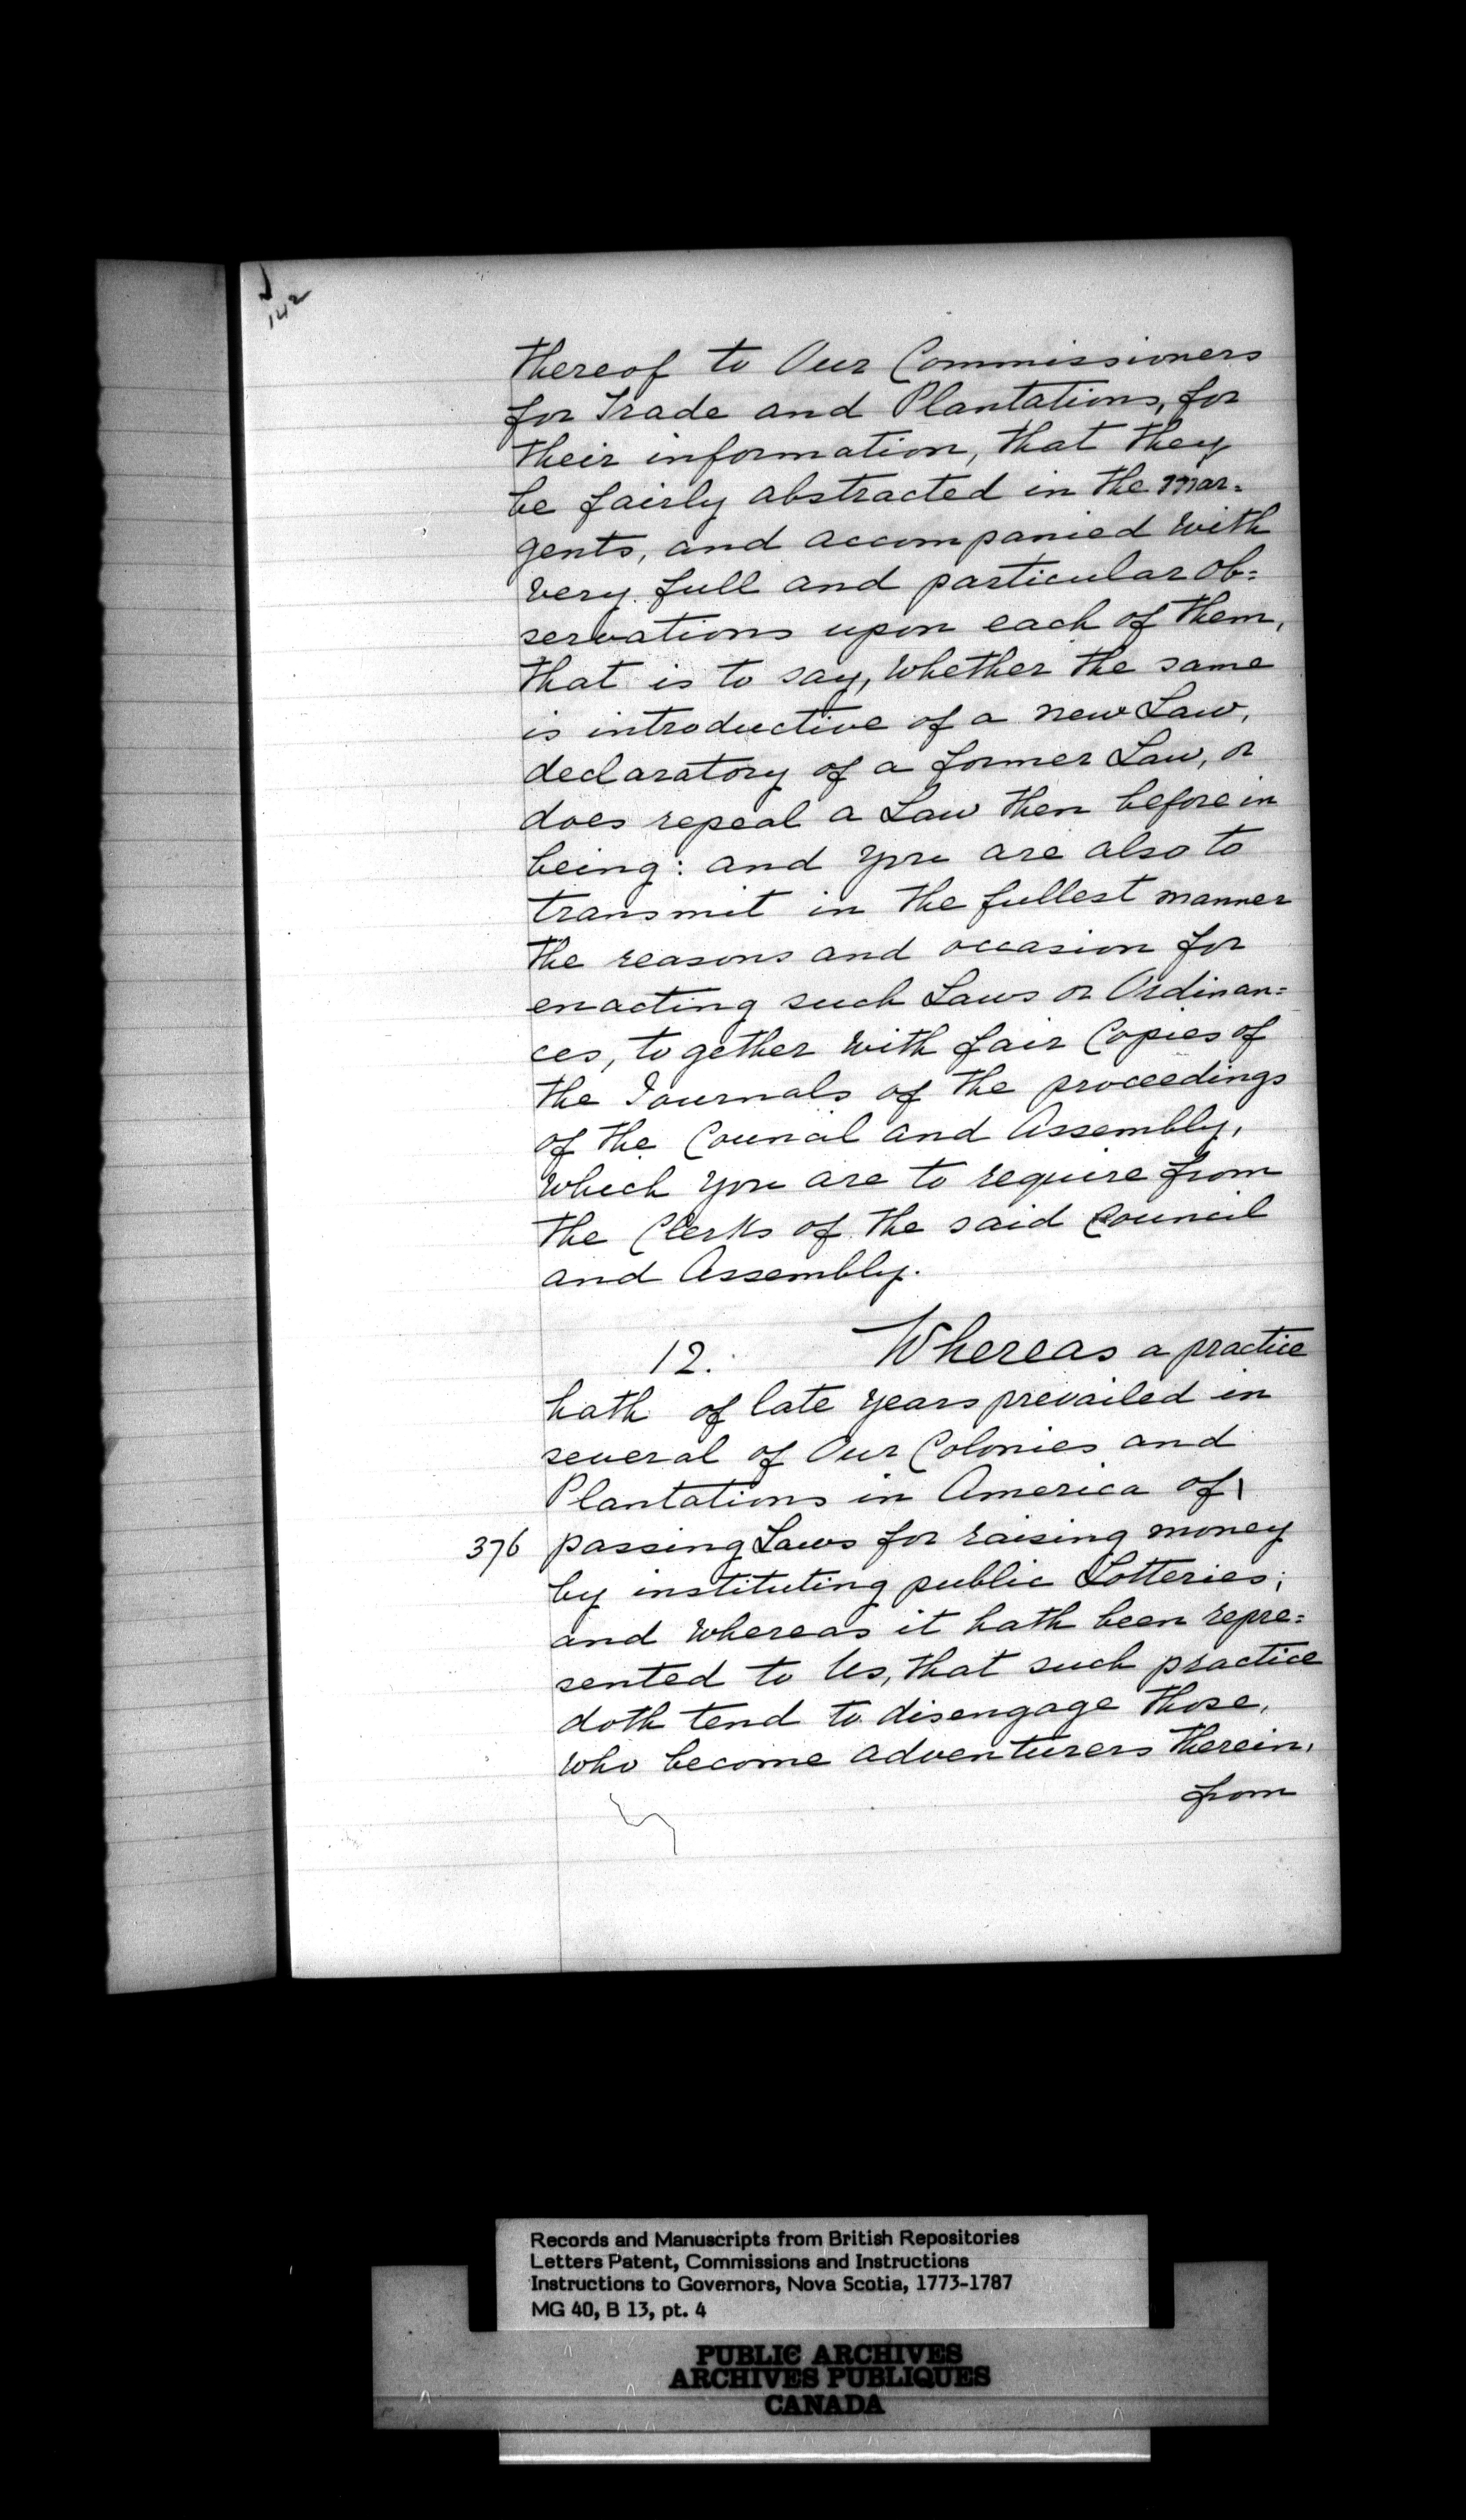 142
thereof to Our Commissioners
for Trade and Plantations, for
their information, that they
be fairly abstracted in the mar=
gents, and accompanied with
very full and particular ob=
servations upon each of them,
that is to say, whether the same
is introductive of a new Law,
declaratory of a former Law, or
does repeal a Law then before in
being: and you are also to
transmit in the fullest manner
the reasons and occasion for
enacting such Laws or Ordinan=
ces, together with fair Copies of
the Journals of the proceedings
of the Council and Assembly,
which you are to require from
the Clerks of the said Council
and Assembly.
12. Whereas a practice
hath of late years prevailed in
several of Our Colonies and
Plantations in America of
376 passing Laws for raising money
by instituting public Lotteries;
and whereas it hath been repre=
sented to Us, that such practice
doth tend to disengage those,
who become adventurers therein,
from
Records and Manuscripts from British Repositories
Letters Patent, Commissions and Instructions
Instructions to Governors, Nova Scotia, 1773-1787
MG 40, B 13, pt. 4
PUBLIC ARCHIVES
ARCHIVES PUBLIQUES
CANADA